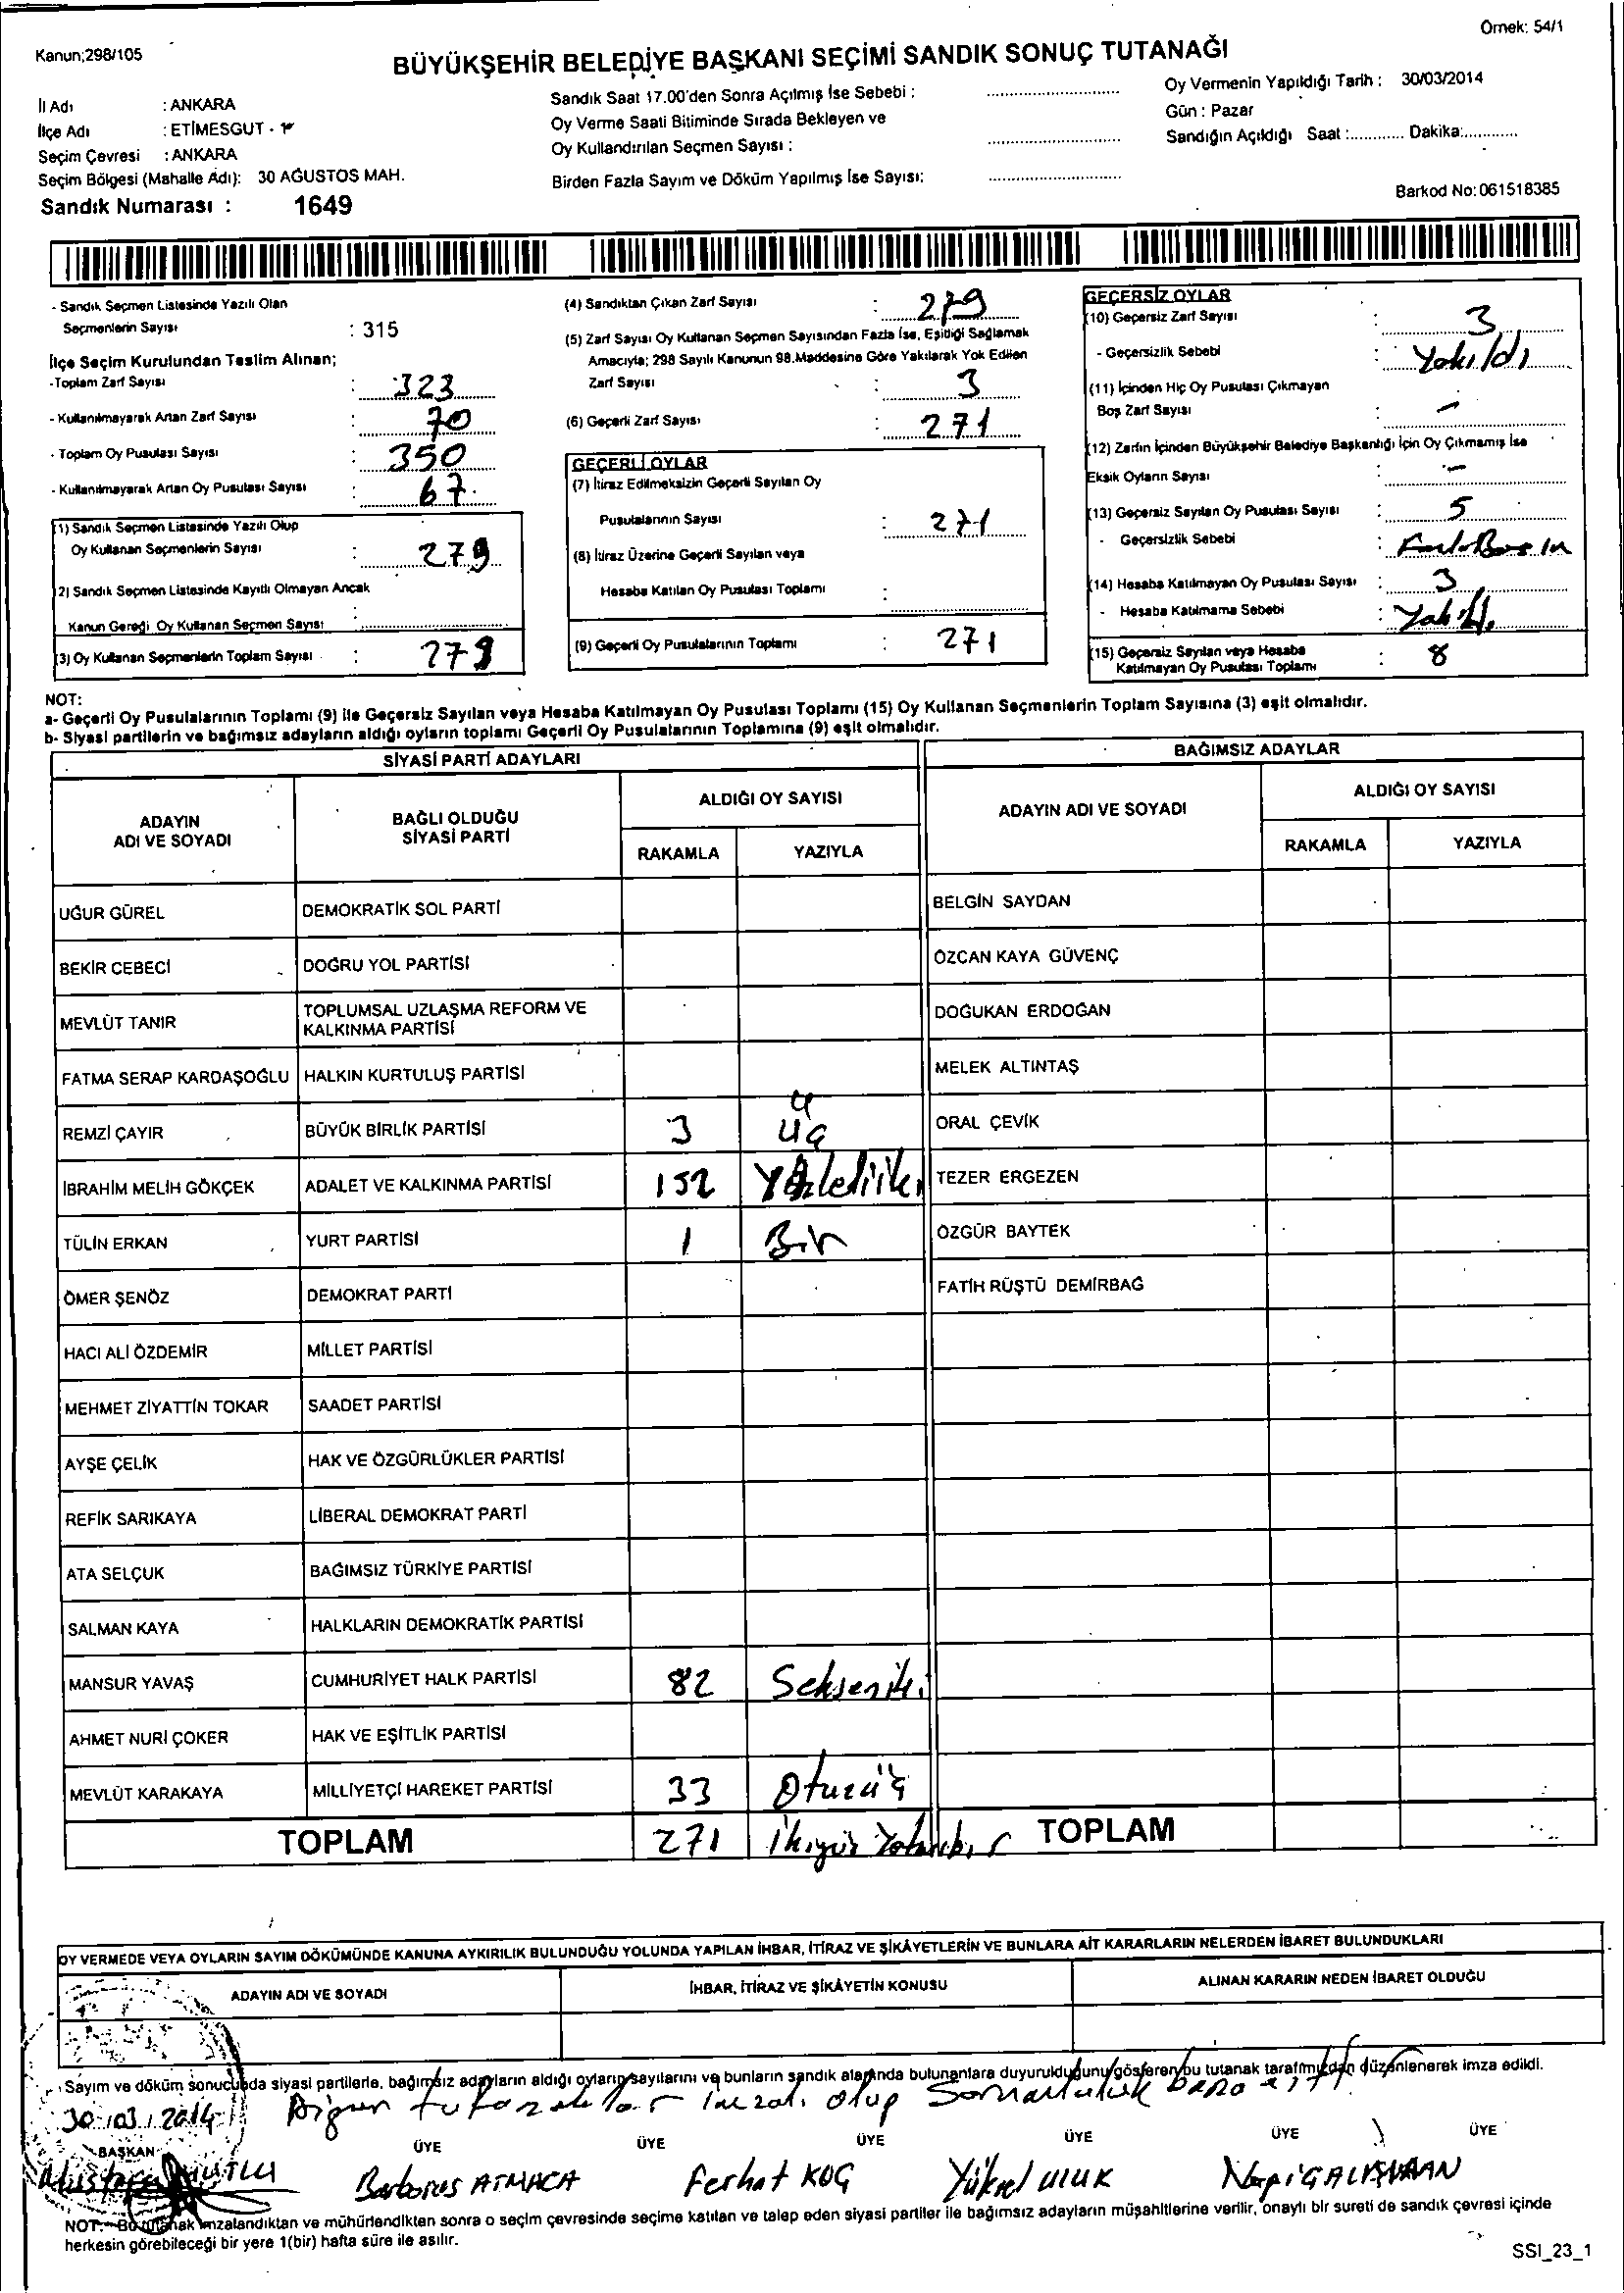 Örnek: 54/1
Kanun;298/105
BÜYÜKŞEHİR BELEDİYE BAŞKANI SEÇİMİ SANDIK SONUÇ TUTANAĞI
İl Adı : ANKARA
İlçe Adı : ETİMESGUT - 1
Seçim Çevresi : ANKARA
Seçim Bölgesi (Mahalle Adı): 30 AĞUSTOS MAH.
Sandık Numarası : 1649
Sandık Saat 17.00'den Sonra Açılmış İse Sebebi :
Oy Verme Saati Bitiminde Sırada Bekleyen ve
Oy Kullandırılan Seçmen Sayısı :
Birden Fazla Sayım ve Döküm Yapılmış İse Sayısı:
Oy Vermenin Yapıldığı Tarih : 30/03/2014
Gün : Pazar
Sandığın Açıldığı Saat :............ Dakika:............
Barkod No: 061518385
- Sandık Seçmen Listesinde Yazılı Olan
Seçmenlerin Sayısı : 315
İlçe Seçim Kurulundan Teslim Alınan;
-Toplam Zarf Sayısı : 323
- Kullanılmayarak Artan Zarf Sayısı : 70
- Toplam Oy Pusulası Sayısı : 350
- Kullanılmayarak Artan Oy Pusulası Sayısı : 67
(1) Sandık Seçmen Listesinde Yazılı Olup
Oy Kullanan Seçmenlerin Sayısı : 279
2) Sandık Seçmen Listesinde Kayıtlı Olmayan Ancak
Kanun Gereği Oy Kullanan Seçmen Sayısı :
(3) Oy Kullanan Seçmenlerin Toplam Sayısı : 279
(4) Sandıktan Çıkan Zarf Sayısı : 279
(5) Zarf Sayısı Oy Kullanan Seçmen Sayısından Fazla İse, Eşitliği Sağlamak
Amacıyla; 298 Sayılı Kanunun 98.Maddesine Göre Yakılarak Yok Edilen
Zarf Sayısı : 3
(6) Geçerli Zarf Sayısı : 271
GEÇERLİ OYLAR
(7) İtiraz Edilmeksizin Geçerli Sayılan Oy
Pusulalarının Sayısı : 271
(8) İtiraz Üzerine Geçerli Sayılan veya
Hesaba Katılan Oy Pusulası Toplamı :
(9) Geçerli Oy Pusulalarının Toplamı : 271
GEÇERSİZ OYLAR
(10) Geçersiz Zarf Sayısı : 3
- Geçersizlik Sebebi : Yakıldı
(11) İçinden Hiç Oy Pusulası Çıkmayan
Boş Zarf Sayısı : -
(12) Zarfın İçinden Büyükşehir Belediye Başkanlığı İçin Oy Çıkmamış İse
Eksik Oyların Sayısı : -
(13) Geçersiz Sayılan Oy Pusulası Sayısı : 5
- Geçersizlik Sebebi :
(14) Hesaba Katılmayan Oy Pusulası Sayısı : 3
- Hesaba Katılmama Sebebi : Yakıldı.
(15) Geçersiz Sayılan veya Hesaba
Katılmayan Oy Pusulası Toplamı : 8
NOT:
a- Geçerli Oy Pusulalarının Toplamı (9) ile Geçersiz Sayılan veya Hesaba Katılmayan Oy Pusulası Toplamı (15) Oy Kullanan Seçmenlerin Toplam Sayısına (3) eşit olmalıdır.
b- Siyasi partilerin ve bağımsız adayların aldığı oyların toplamı Geçerli Oy Pusulalarının Toplamına (9) eşit olmalıdır.
SİYASİ PARTİ ADAYLARI
BAĞIMSIZ ADAYLAR
ADAYIN
ADI VE SOYADI
BAĞLI OLDUĞU
SİYASİ PARTİ
ALDIĞI OY SAYISI
RAKAMLA YAZIYLA
ADAYIN ADI VE SOYADI
ALDIĞI OY SAYISI
RAKAMLA YAZIYLA
UĞUR GÜREL DEMOKRATİK SOL PARTİ BELGİN SAYDAN
BEKİR CEBECİ DOĞRU YOL PARTİSİ ÖZCAN KAYA GÜVENÇ
MEVLÜT TANIR TOPLUMSAL UZLAŞMA REFORM VE
KALKINMA PARTİSİ DOĞUKAN ERDOĞAN
FATMA SERAP KARDAŞOĞLU HALKIN KURTULUŞ PARTİSİ MELEK ALTINTAŞ
REMZİ ÇAYIR BÜYÜK BİRLİK PARTİSİ 3 üç ORAL ÇEVİK
İBRAHİM MELİH GÖKÇEK ADALET VE KALKINMA PARTİSİ 152 TEZER ERGEZEN
TÜLİN ERKAN YURT PARTİSİ 1 Bir ÖZGÜR BAYTEK
ÖMER ŞENÖZ DEMOKRAT PARTİ FATİH RÜŞTÜ DEMİRBAĞ
HACI ALİ ÖZDEMİR MİLLET PARTİSİ
MEHMET ZİYATTİN TOKAR SAADET PARTİSİ
AYŞE ÇELİK HAK VE ÖZGÜRLÜKLER PARTİSİ
REFİK SARIKAYA LİBERAL DEMOKRAT PARTİ
ATA SELÇUK BAĞIMSIZ TÜRKİYE PARTİSİ
SALMAN KAYA HALKLARIN DEMOKRATİK PARTİSİ
MANSUR YAVAŞ CUMHURİYET HALK PARTİSİ 82 Sekseniki
AHMET NURİ ÇOKER HAK VE EŞİTLİK PARTİSİ
MEVLÜT KARAKAYA MİLLİYETÇİ HAREKET PARTİSİ 33 Otuzüç
TOPLAM 271 TOPLAM
OY VERMEDE VEYA OYLARIN SAYIM DÖKÜMÜNDE KANUNA AYKIRILIK BULUNDUĞU YOLUNDA YAPILAN İHBAR, İTİRAZ VE ŞİKÂYETLERİN VE BUNLARA AİT KARARLARIN NELERDEN İBARET BULUNDUKLARI
ADAYIN ADI VE SOYADI İHBAR, İTİRAZ VE ŞİKÂYETİN KONUSU ALINAN KARARIN NEDEN İBARET OLDUĞU
Sayım ve döküm sonucunda siyasi partilerle, bağımsız adayların aldığı oyların sayılarını ve bunların sandık alanında bulunanlara duyurulduğunu gösteren bu tutanak tarafımızdan düzenlenerek imza edildi.
30/03/2014 olup bana
BAŞKAN ÜYE ÜYE ÜYE ÜYE ÜYE ÜYE
Mustafa MUTLU Barbaros ATMACA Ferhat KOÇ Yüksel ULUK
NOT: Bu tutanak imzalandıktan ve mühürlendikten sonra o seçim çevresinde seçime katılan ve talep eden siyasi partiler ile bağımsız adayların müşahitlerine verilir, onaylı bir sureti de sandık çevresi içinde
herkesin görebileceği bir yere 1(bir) hafta süre ile asılır.
SSI_23_1